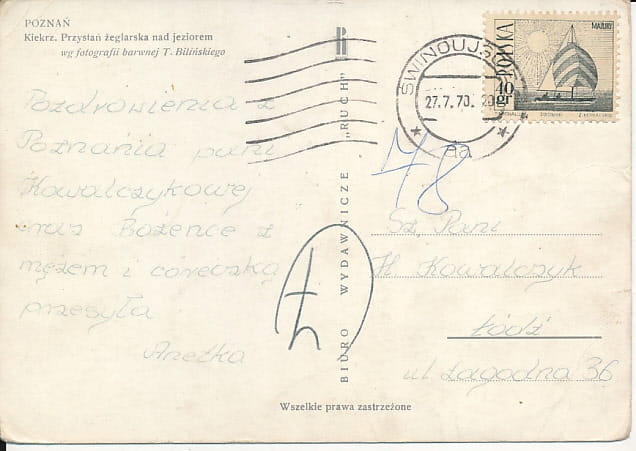 POZNAŃ
Kiekrz. Przystań żeglarska nad jeziorem
wg fotografii barwnej T. Bilińskiego
Pozdrowienia z
Poznania pani
Kowalczykowej
oraz Bożence z
mężem i córeczką
przesyła
Anetka
BIURO WYDAWNICZE „RUCH”
Wszelkie prawa zastrzeżone
27.7.70.
MAZURY
POLSKA
40 gr
48
Sz. Pani
H. Kowalczyk
Łódź
ul Łagodna 36